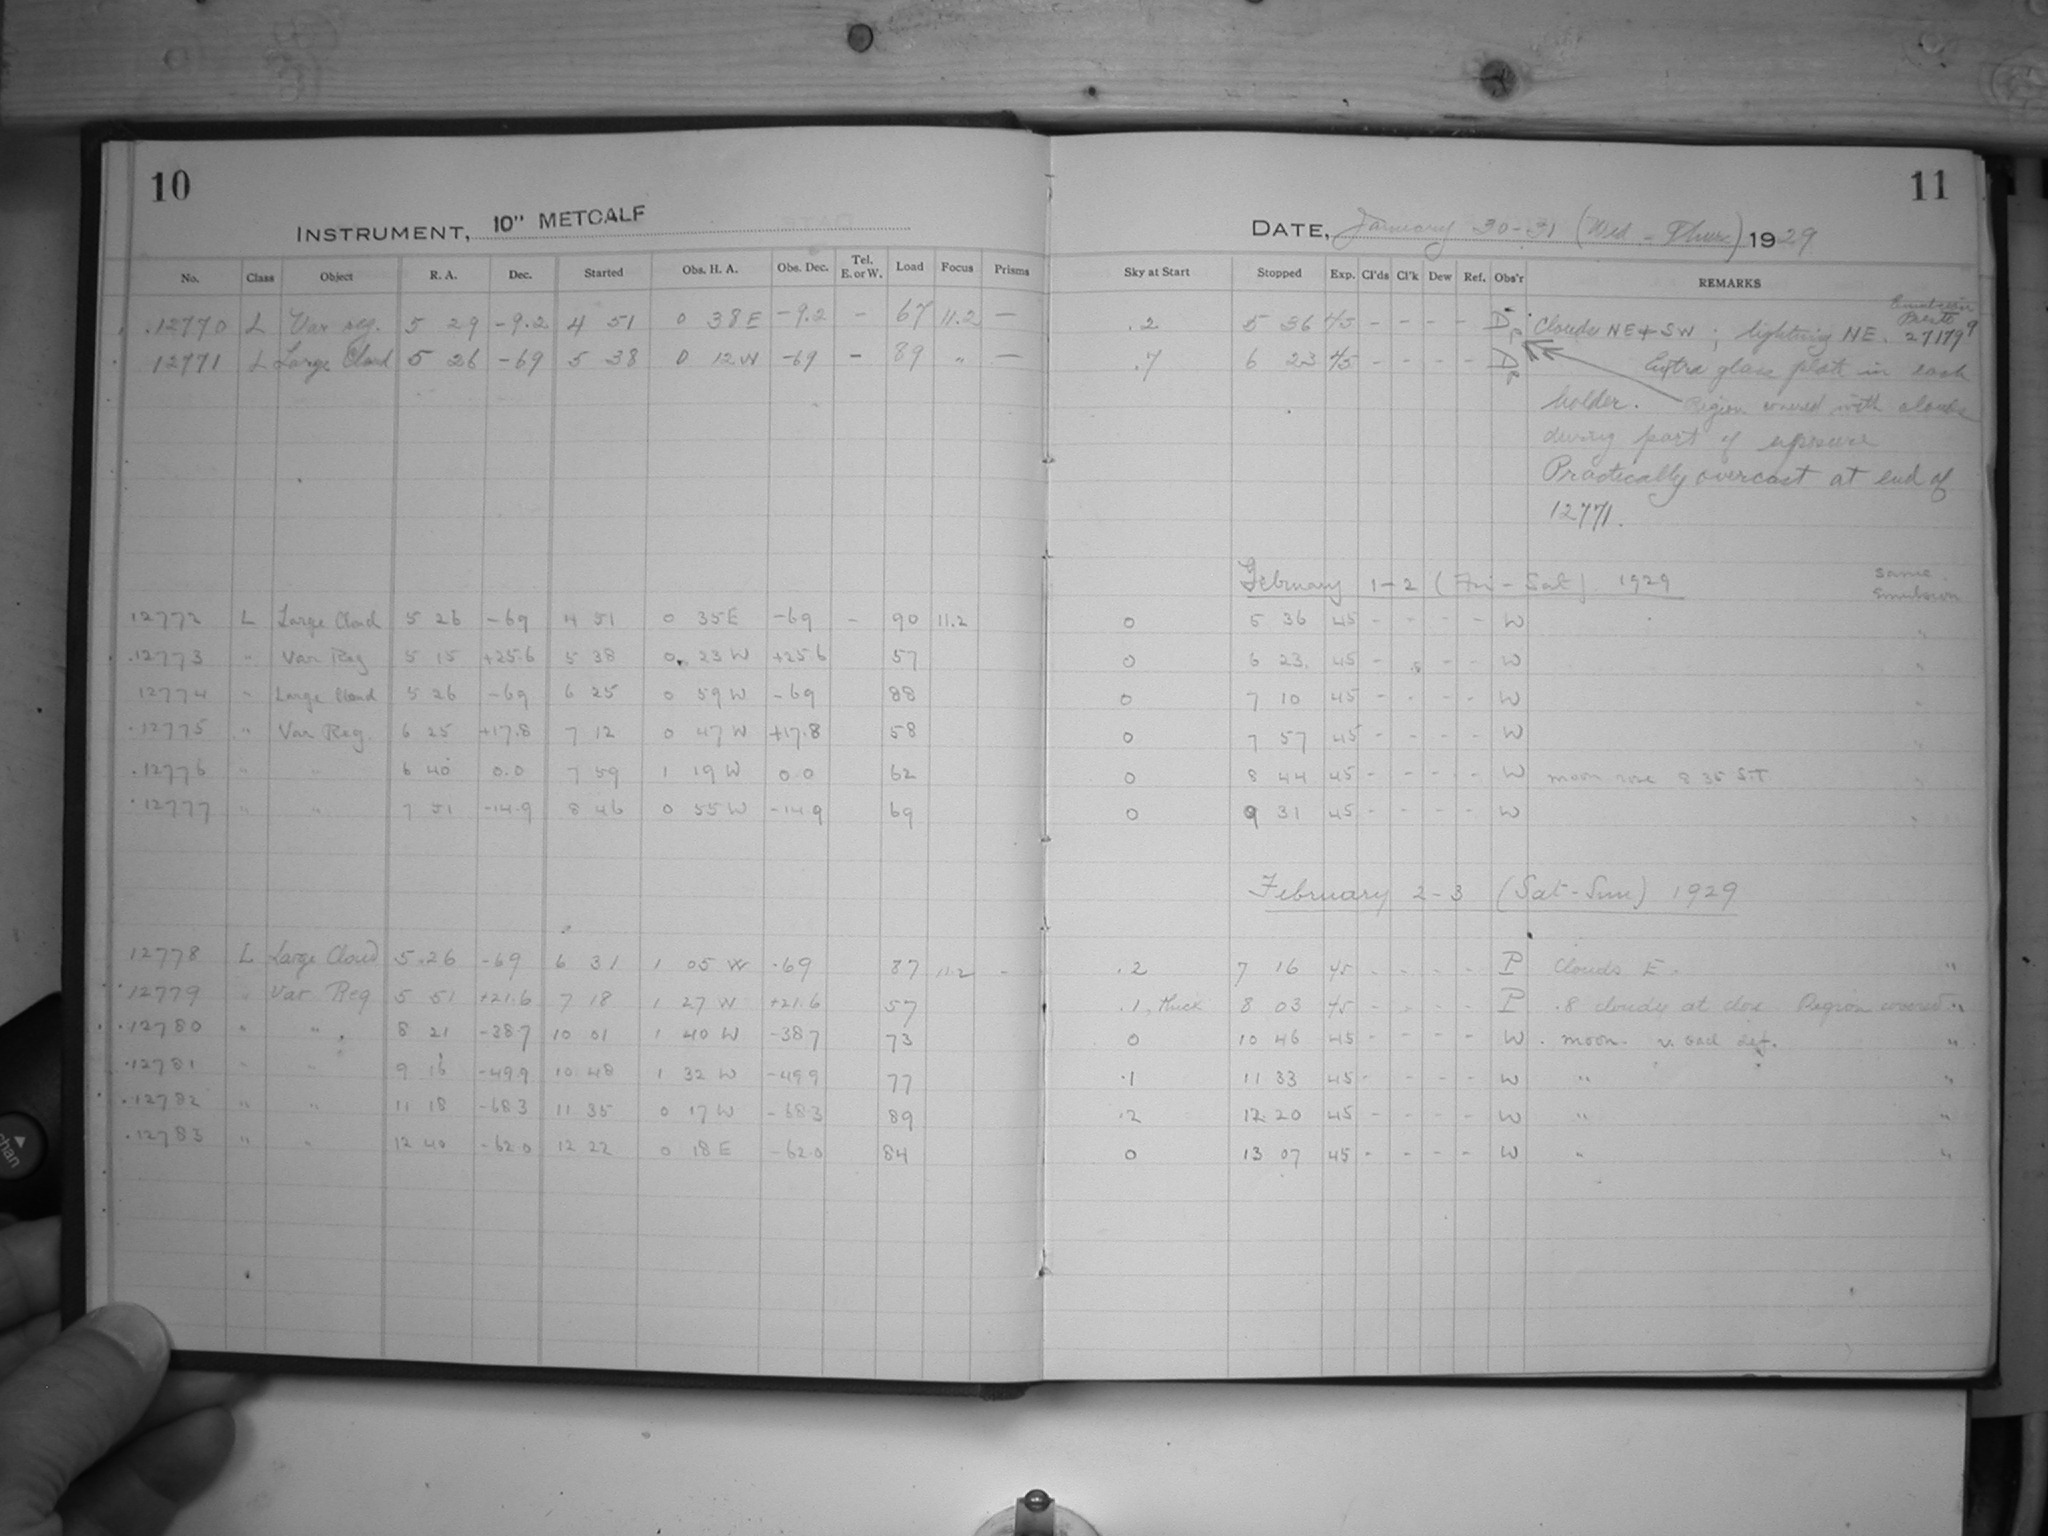 10
INSTRUMENT, 10" METCALF
No. Class Object R. A. Dec. Started Obs. H. A. Obs. Dec. Tel. E. or W. Load Focus Prisms
12770 L Var reg. 5 29 -9.2 4 51 0 38 E -9.2 - 67 11.2 —
12771 L Large Cloud 5 26 -69 5 38 0 12 W -69 - 89 " —
12772 L Large Cloud 5 26 -69 4 51 0 35 E -69 - 90 11.2
12773 " Var Reg 5 15 +25.6 5 38 0 23 W +25.6 57
12774 " Large Cloud 5 26 -69 6 25 0 59 W -69 88
12775 " Var Reg. 6 25 +17.8 7 12 0 47 W +17.8 58
12776 " " 6 40 0.0 7 59 1 19 W 0.0 62
12777 " " 7 51 -14.9 8 46 0 55 W -14.9 69
12778 L Large Cloud 5 26 -69 6 31 1 05 W -69 87 11.2 -
12779 " Var Reg 5 51 +21.6 7 18 1 27 W +21.6 57
12780 " " 8 21 -38.7 10 01 1 40 W -38.7 73
12781 " " 9 16 -49.9 10 48 1 32 W -49.9 77
12782 " " 11 18 -68.3 11 35 0 17 W -68.3 89
12783 " " 12 40 -62.0 12 22 0 18 E -62.0 84
11
DATE, January 30-31 (Wed - Thurs) 1929
Sky at Start Stopped Exp. Cl'ds Cl'k Dew Ref. Obs'r REMARKS
Emulsion
.2 5 36 45 - - - - Dp Clouds NE + SW ; lightning NE. 27179
.7 6 23 45 - - - - Dp Extra glass plate in each
holder. Region covered with clouds
during part of exposure
Practically overcast at end of
12771.
February 1-2 (Fri - Sat) 1929 same
emulsion
0 5 36 45 - - - - W "
0 6 23 45 - - - - W "
0 7 10 45 - - - - W "
0 7 57 45 - - - - W "
0 8 44 45 - - - - W moon rose 8 35 S.T. "
0 9 31 45 - - - - W "
February 2-3 (Sat-Sun) 1929
.2 7 16 45 - - - - P Clouds E. "
.1, thick 8 03 45 - - - - P .8 cloudy at close Region covered "
0 10 46 45 - - - - W moon. v. bad def. "
.1 11 33 45 - - - - W " "
.2 12 20 45 - - - - W " "
0 13 07 45 - - - - W " "
chan